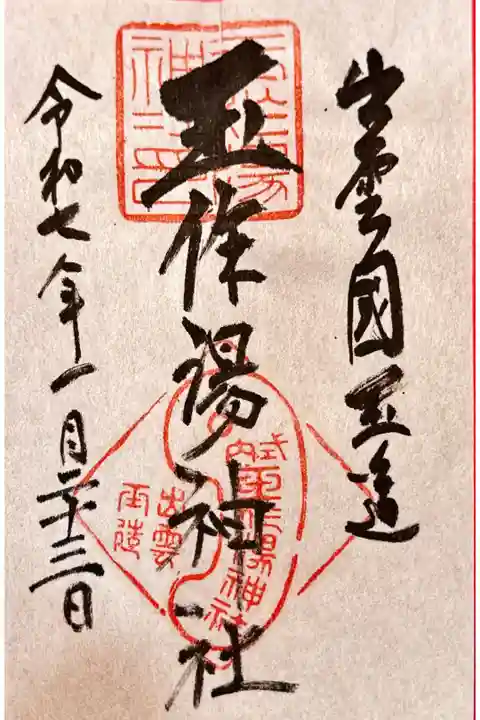 出雲國玉造
玉作湯神社
令和七年一月二十三日
式内
玉作湯神社
出雲
玉造